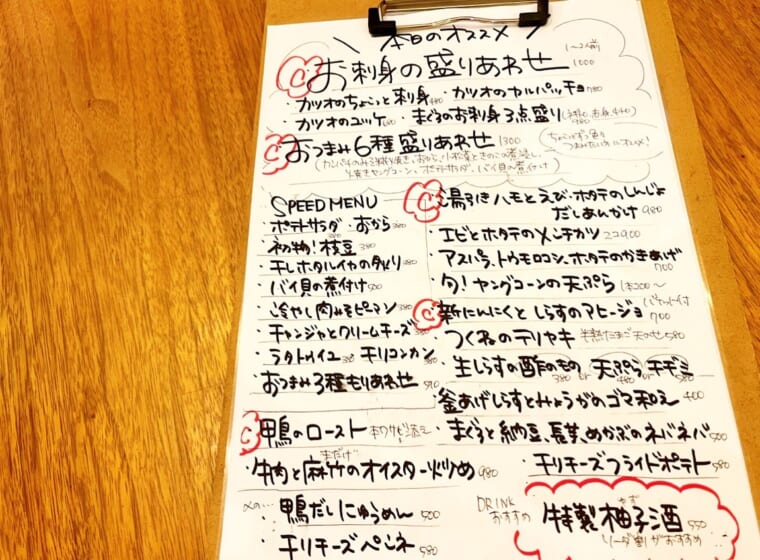 本日のオススメ
お刺身の盛りあわせ 1〜2人前 1000
・カツオのちょこっと刺身 480 ・カツオのカルパッチョ 780
・カツオのユッケ ・まぐろのお刺身3点盛り 980
おつまみ6種盛りあわせ 1300
SPEED MENU
・ポテトサラダ ・おから 380
・初物!枝豆 380
・干しホタルイカの炙り 380
・バイ貝の煮付け 500
・冷やし肉みそピーマン 380
・チャンジャとクリームチーズ 380
・ラタトゥイユ 380 ・チリコンカン 380
・おつまみ3種もりあわせ
湯引きハモとえび・ホタテのしんじょ
だしあんかけ 980
・エビとホタテのメンチカツ 2コ900
・アスパラ、トウモロコシ、ホタテのかきあげ 700
・旬!ヤングコーンの天ぷら 1本200〜
新にんにくとしらすのアヒージョ バケット付 700
・つくねのテリヤキ 半熟たまご天のせ 580
・生しらすの酢のもの 380 or 天ぷら 480 or チヂミ 580
・釜あげしらすとみょうがのゴマ和え 400
・まぐろと納豆、長芋、めかぶのネバネバ 500
・チリチーズフライドポテト 580
鴨のロースト 本ワサビ添え
・牛肉と麻竹のオイスター炒め 980
まだけ
〆の…
・鴨だしにゅうめん 500
・チリチーズペンネ 580
DRINK
おすすめ
特製柚子酒 550
ゆず
ソーダ割りがおすすめ